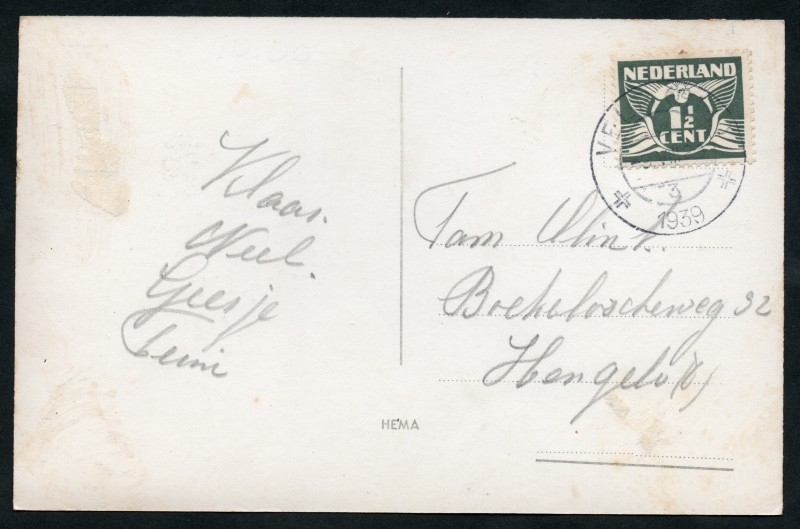 Klaas.
Neel.
Geesje
Feini
NEDERLAND
1½
CENT
3
1939
Fam
Boekeloscheweg 32
Hengelo (O)
HEMA